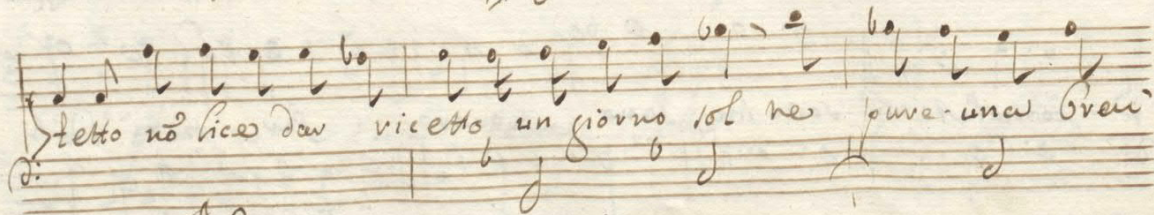 tetto nõ lice dar ricetto un giorno sol ne pure una breu'